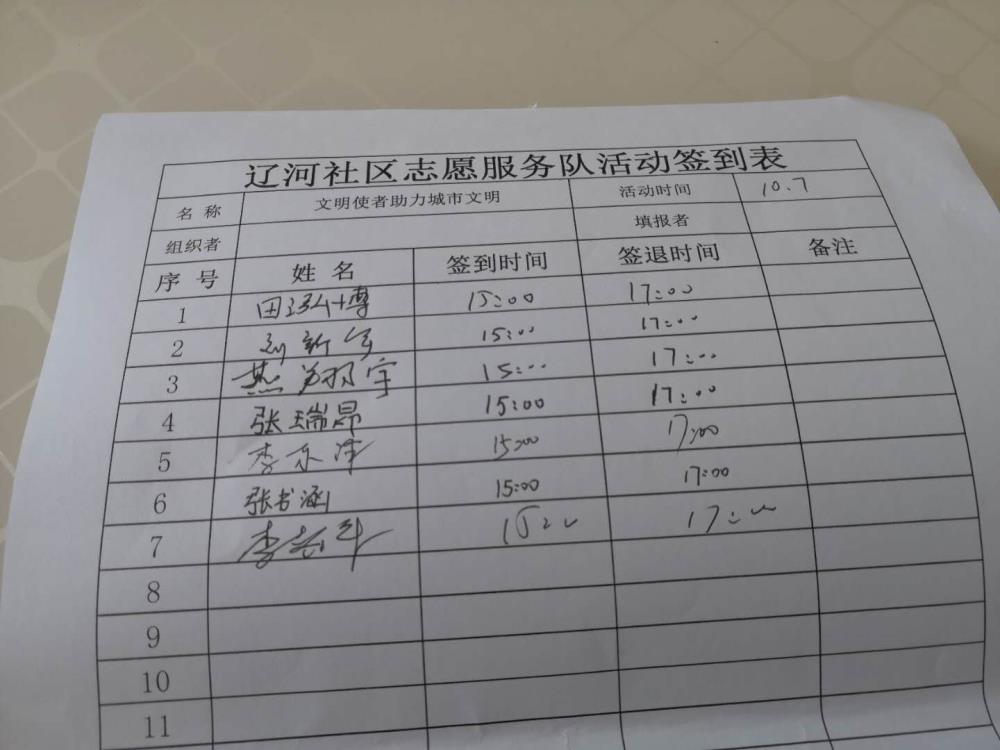 辽河社区志愿服务队活动签到表
名称 文明使者助力城市文明 活动时间 10.7
组织者 填报者
序号 姓名 签到时间 签退时间 备注
1 田泓博 15:00 17:00
2 刘新 15:00 17:00
3 燕 羽宇 15:00 17:00
4 张瑞昂 15:00 17:00
5 李东泽 15:00 17:00
6 张书涵 15:00 17:00
7 李 15:00 17:00
8
9
10
11